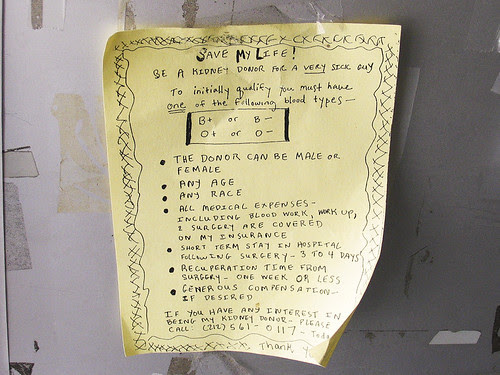 SAVE MY LIFE!
BE A KIDNEY DONOR FOR A VERY SICK GUY
To initially qualify you must have
one of the following blood types —
B+ or B-
O+ or O-
• THE DONOR CAN BE MALE OR
FEMALE
• ANY AGE
• ANY RACE
• ALL MEDICAL EXPENSES-
INCLUDING BLOOD WORK, WORK UP,
& SURGERY ARE COVERED
ON MY INSURANCE
• SHORT TERM STAY IN HOSPITAL
FOLLOWING SURGERY - 3 TO 4 DAYS
• RECUPERATION TIME FROM
SURGERY - ONE WEEK OR LESS
• GENEROUS COMPENSATION-
IF DESIRED
IF YOU HAVE ANY INTEREST IN
BEING MY KIDNEY DONOR - PLEASE
CALL: (212) 561-0117 -
Thank